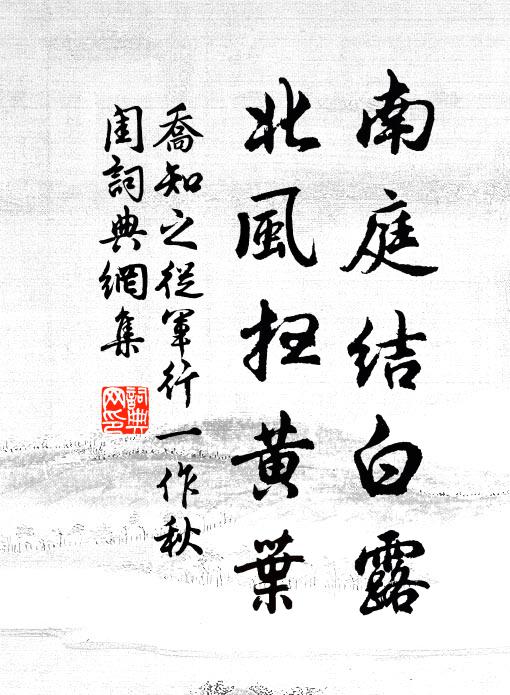 南庭結白露
北風扫黄葉
喬知之從軍行一作秋
闺詞典網集
詞典网印